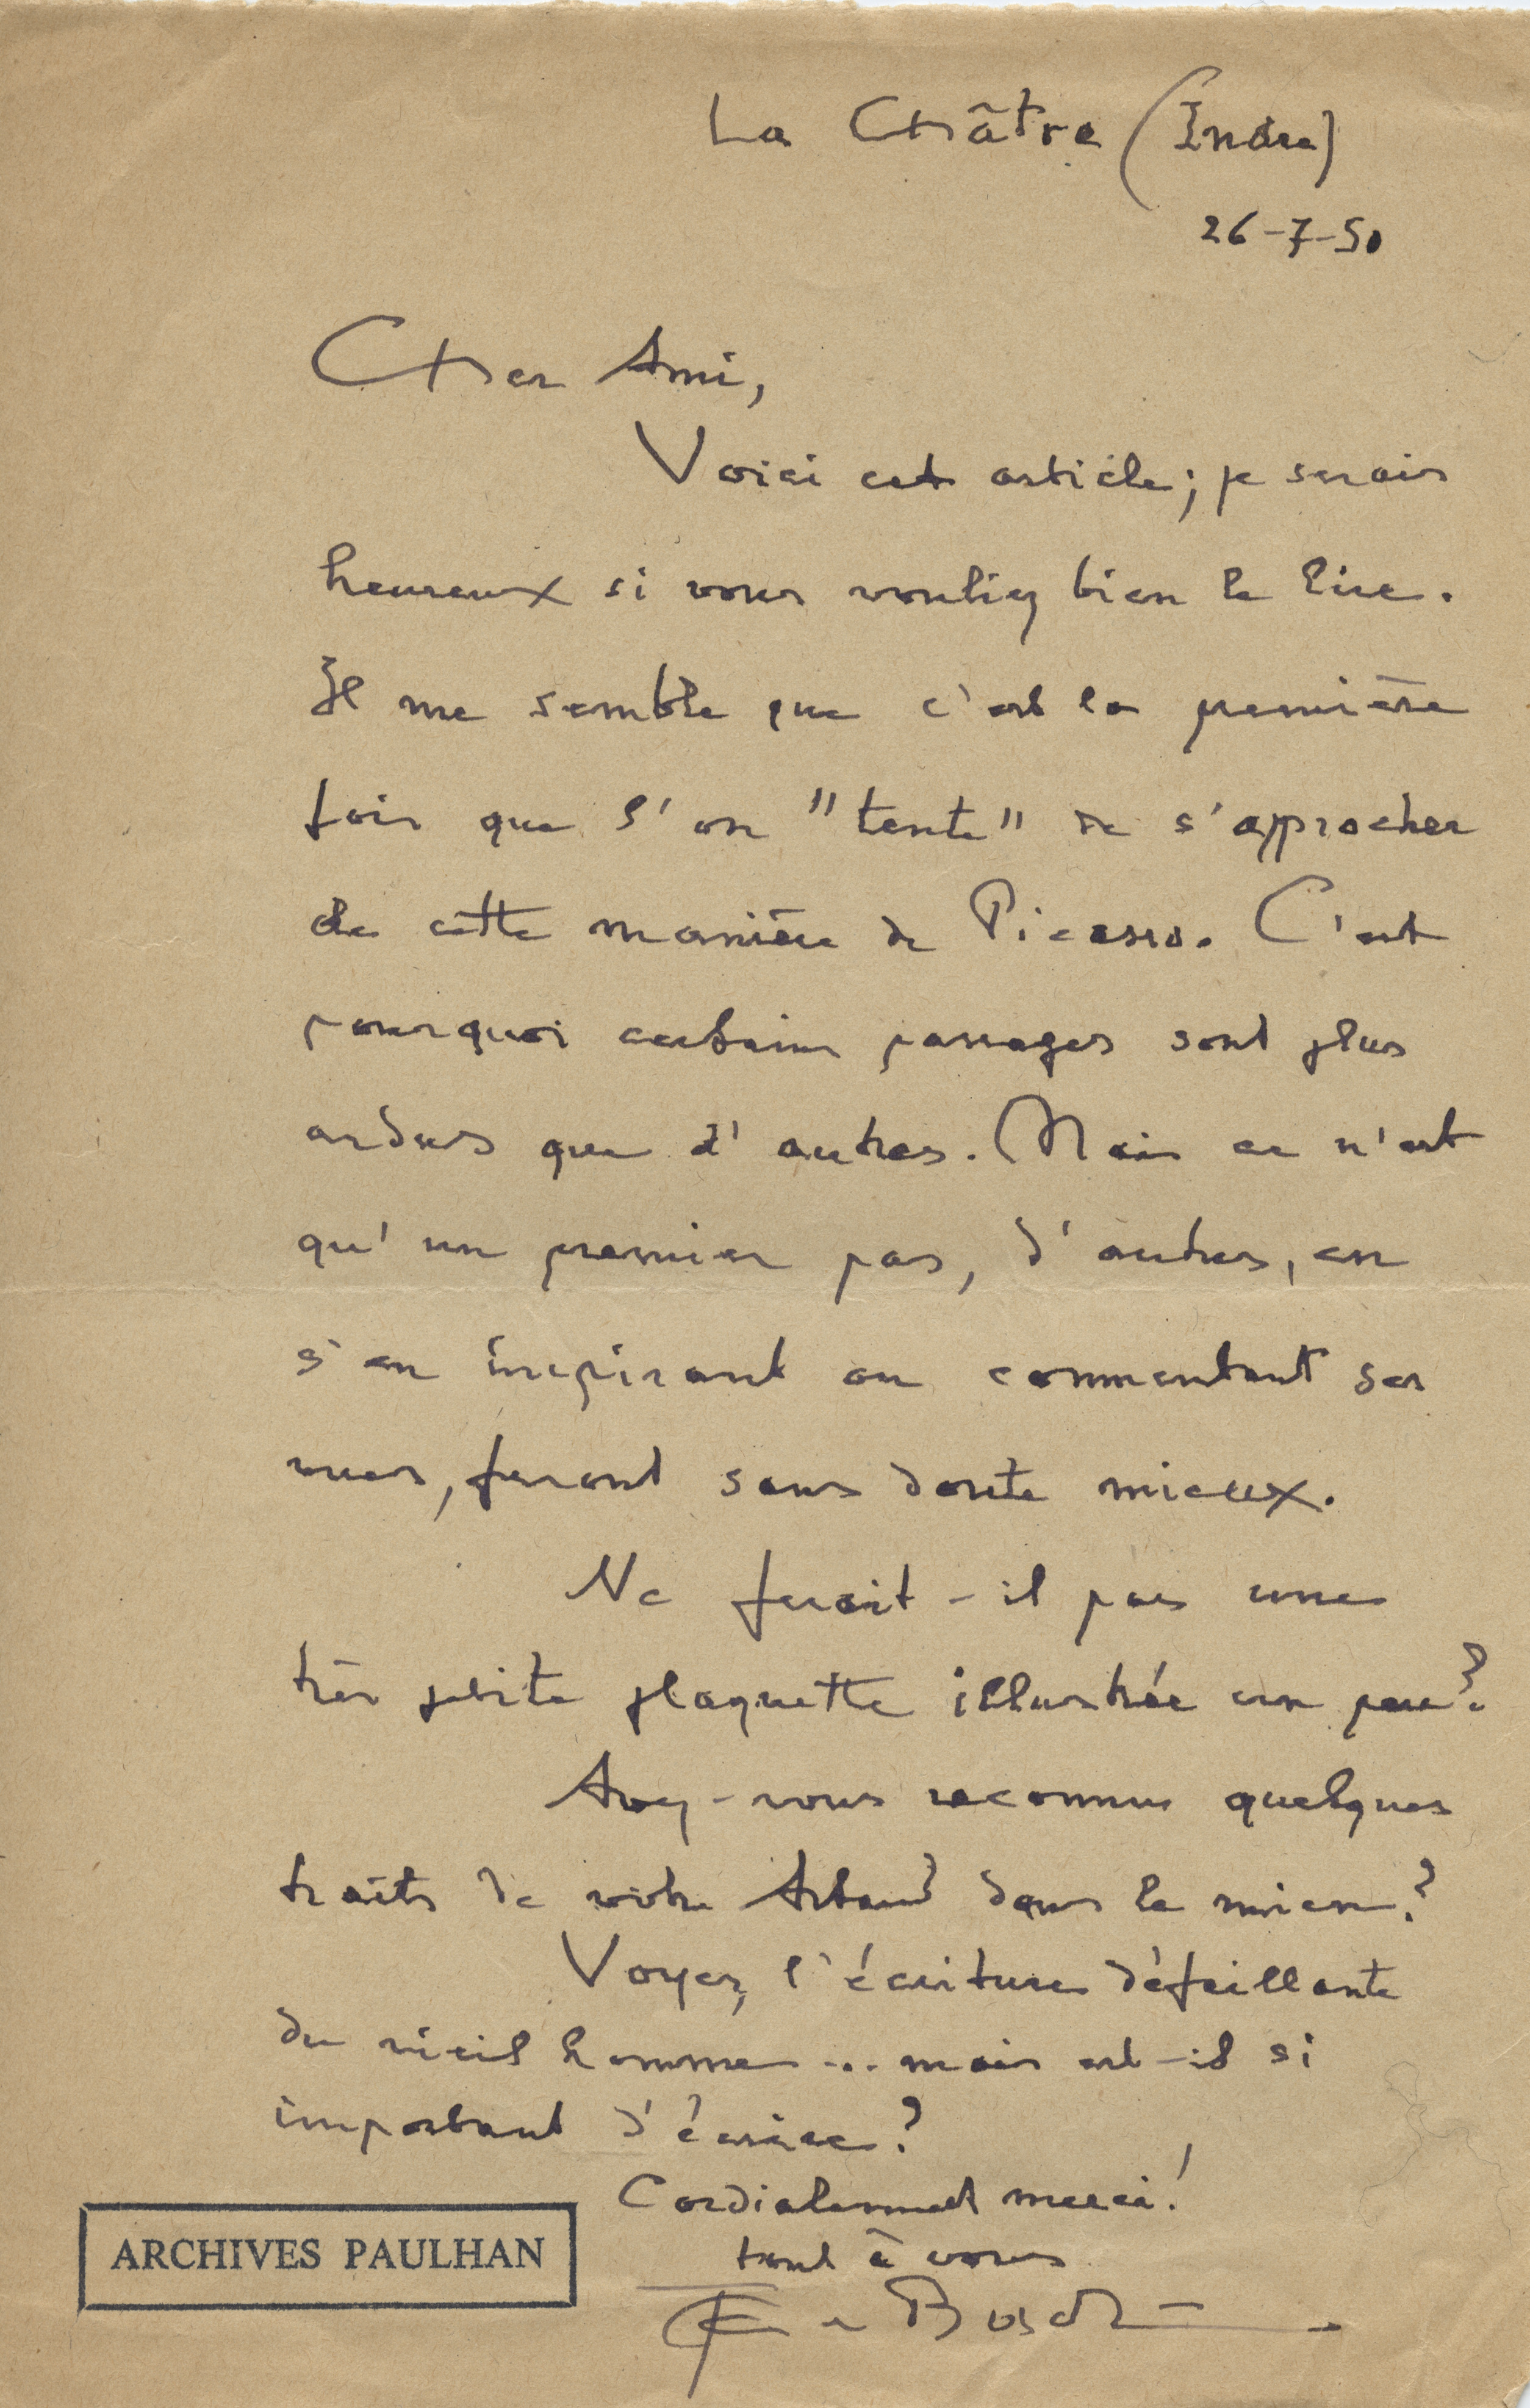 La Châtre (Indre)
26-7-50
Cher Ami,
Voici cet article; je serais
heureux si vous vouliez bien le lire.
Il me semble que c'est la première
fois que l'on "tente" de s'approcher
de cette manière de Picasso. C'est
pourquoi certains passages sont plus
ardus que d'autres. Mais ce n'est
qu'un premier pas, d'autres, en
s'en inspirant ou commentant ses
vues, feront sans doute mieux.
Ne ferait-il pas une
très petite plaquette illustrée un peu?
Avez-vous reconnu quelques
traits de votre Artaud dans le mien?
Voyez, l'écriture défaillante
du vieil homme... mais est-il si
important d'écrire?
Cordialement merci!
tout à vous
Busch
ARCHIVES PAULHAN